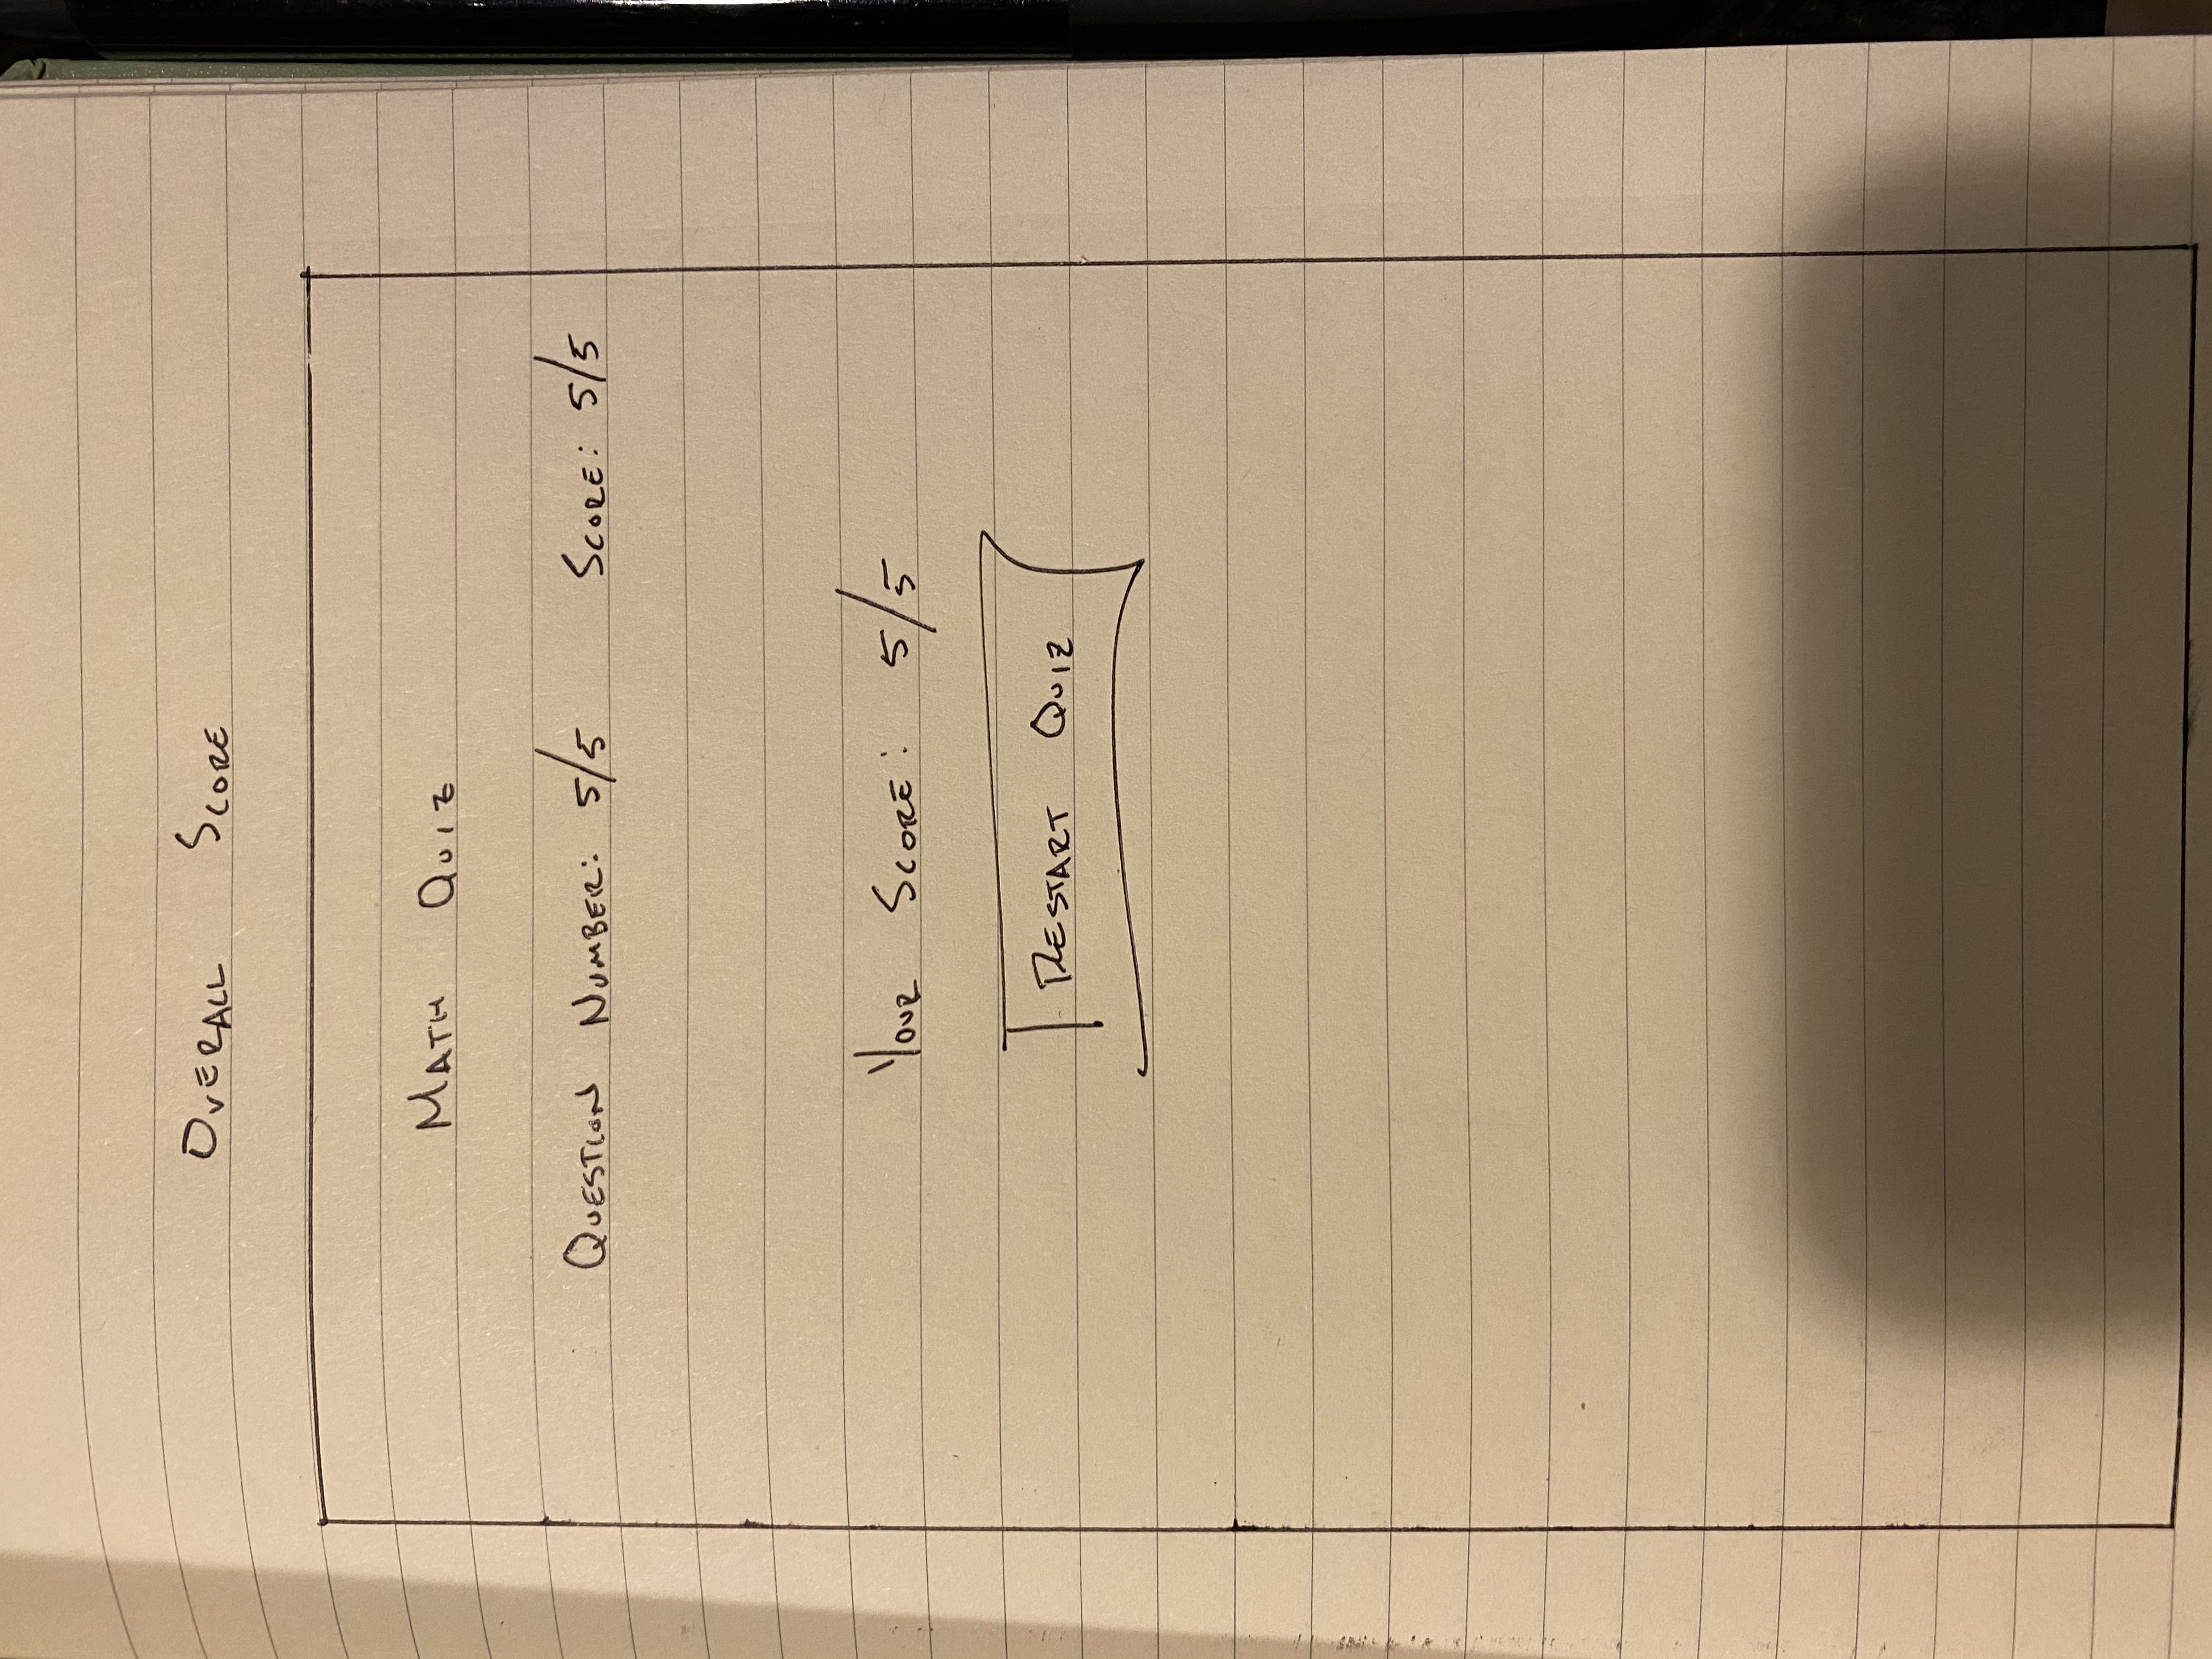 Overall Score
Math Quiz
Question Number: 5/5 Score: 5/5
Your Score: 5/5
Restart Quiz